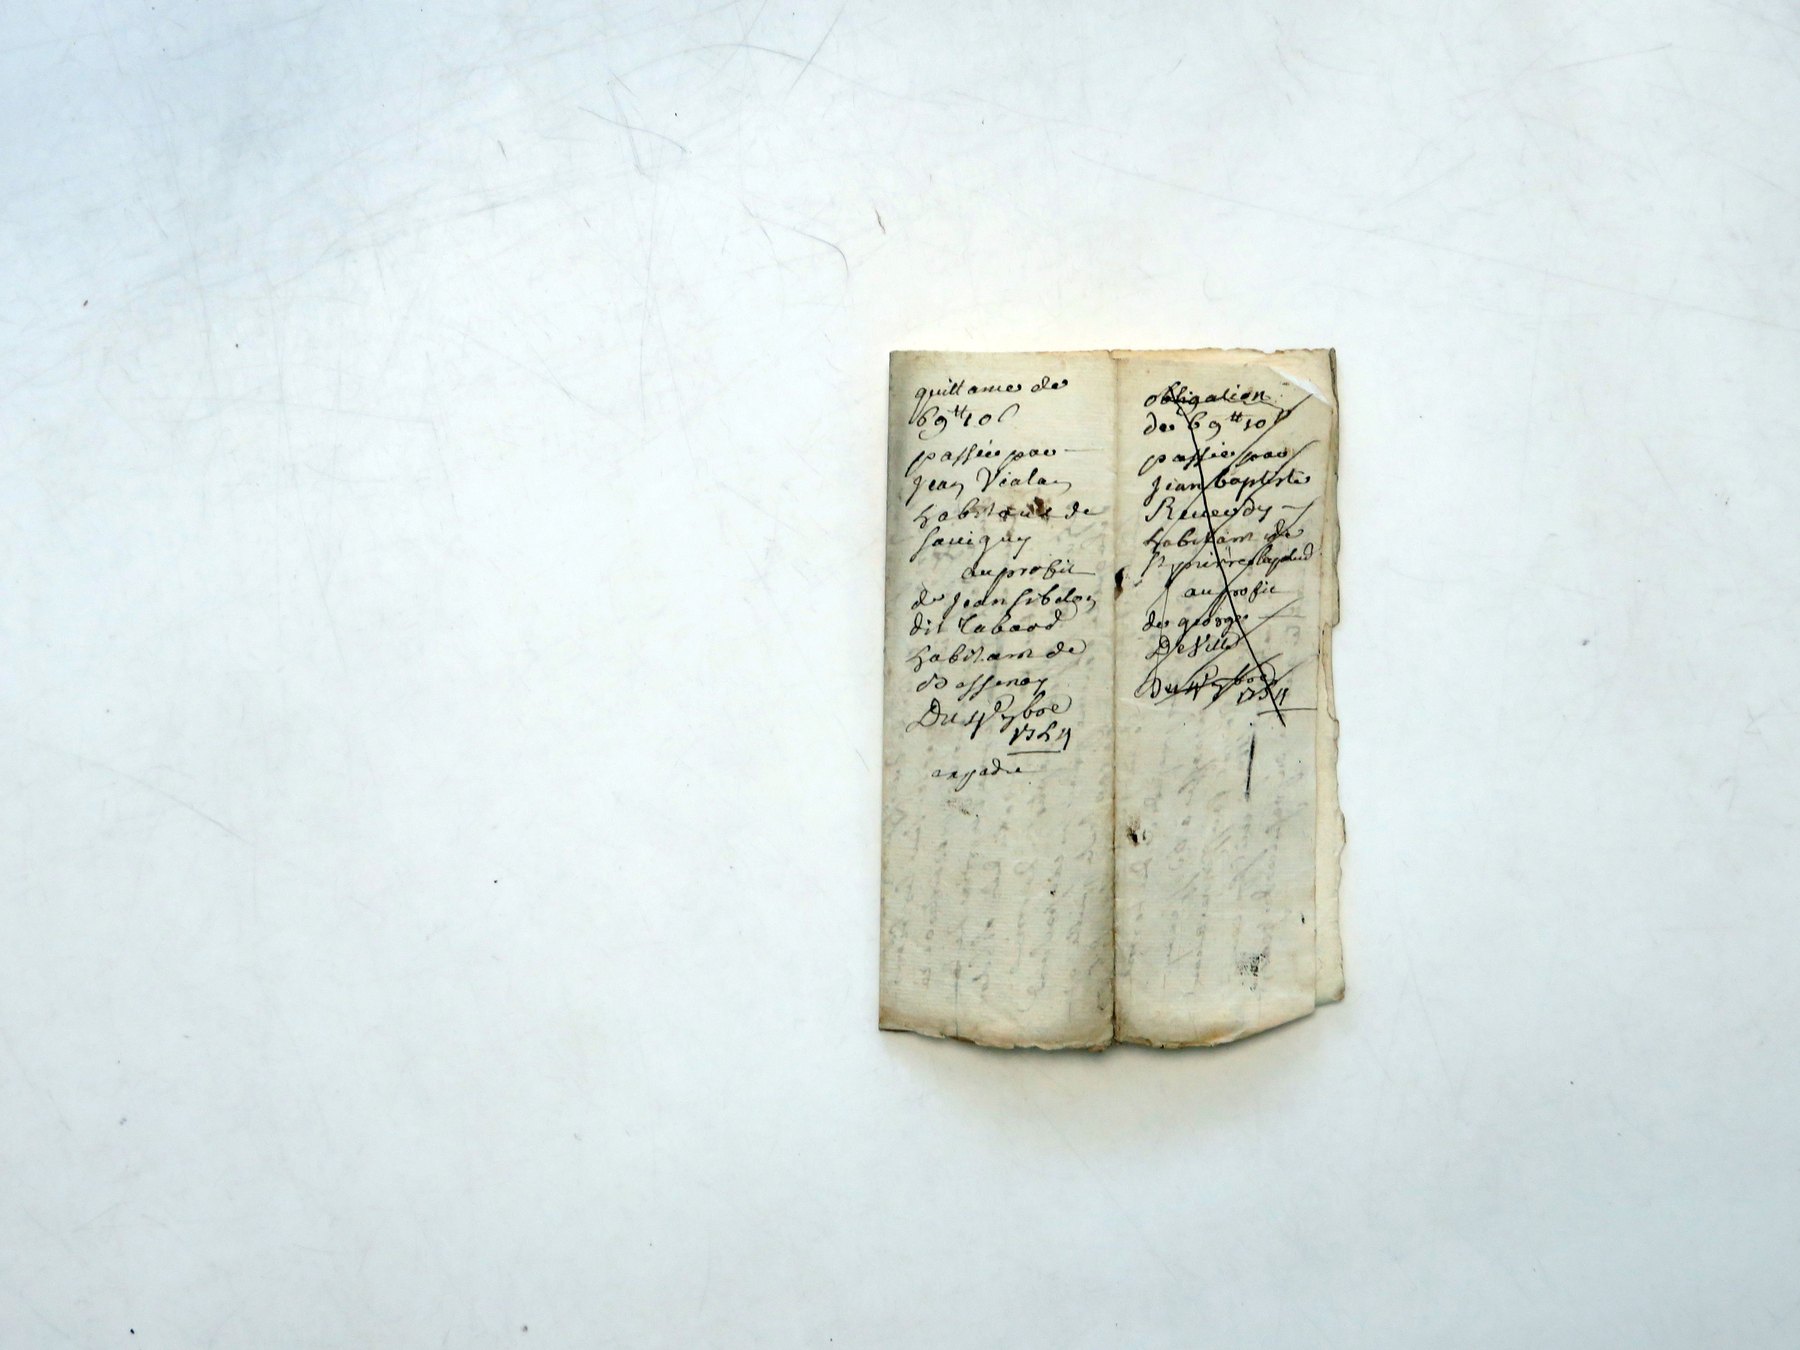 quittance de
69 ₶ 10 s
passée par
Jean Vialay
habitant de
Savigny
au profit
de Jean Sibelon
dit Tabard
habitant de
Bessenay
Du 4e 7bre
1754
expadie
obligation
de 69 ₶ 10 s
passée par
Jean baptiste
habitant de
St pierre lapalud
au profit
de george
De Ville
Du 4e 7bre
1754